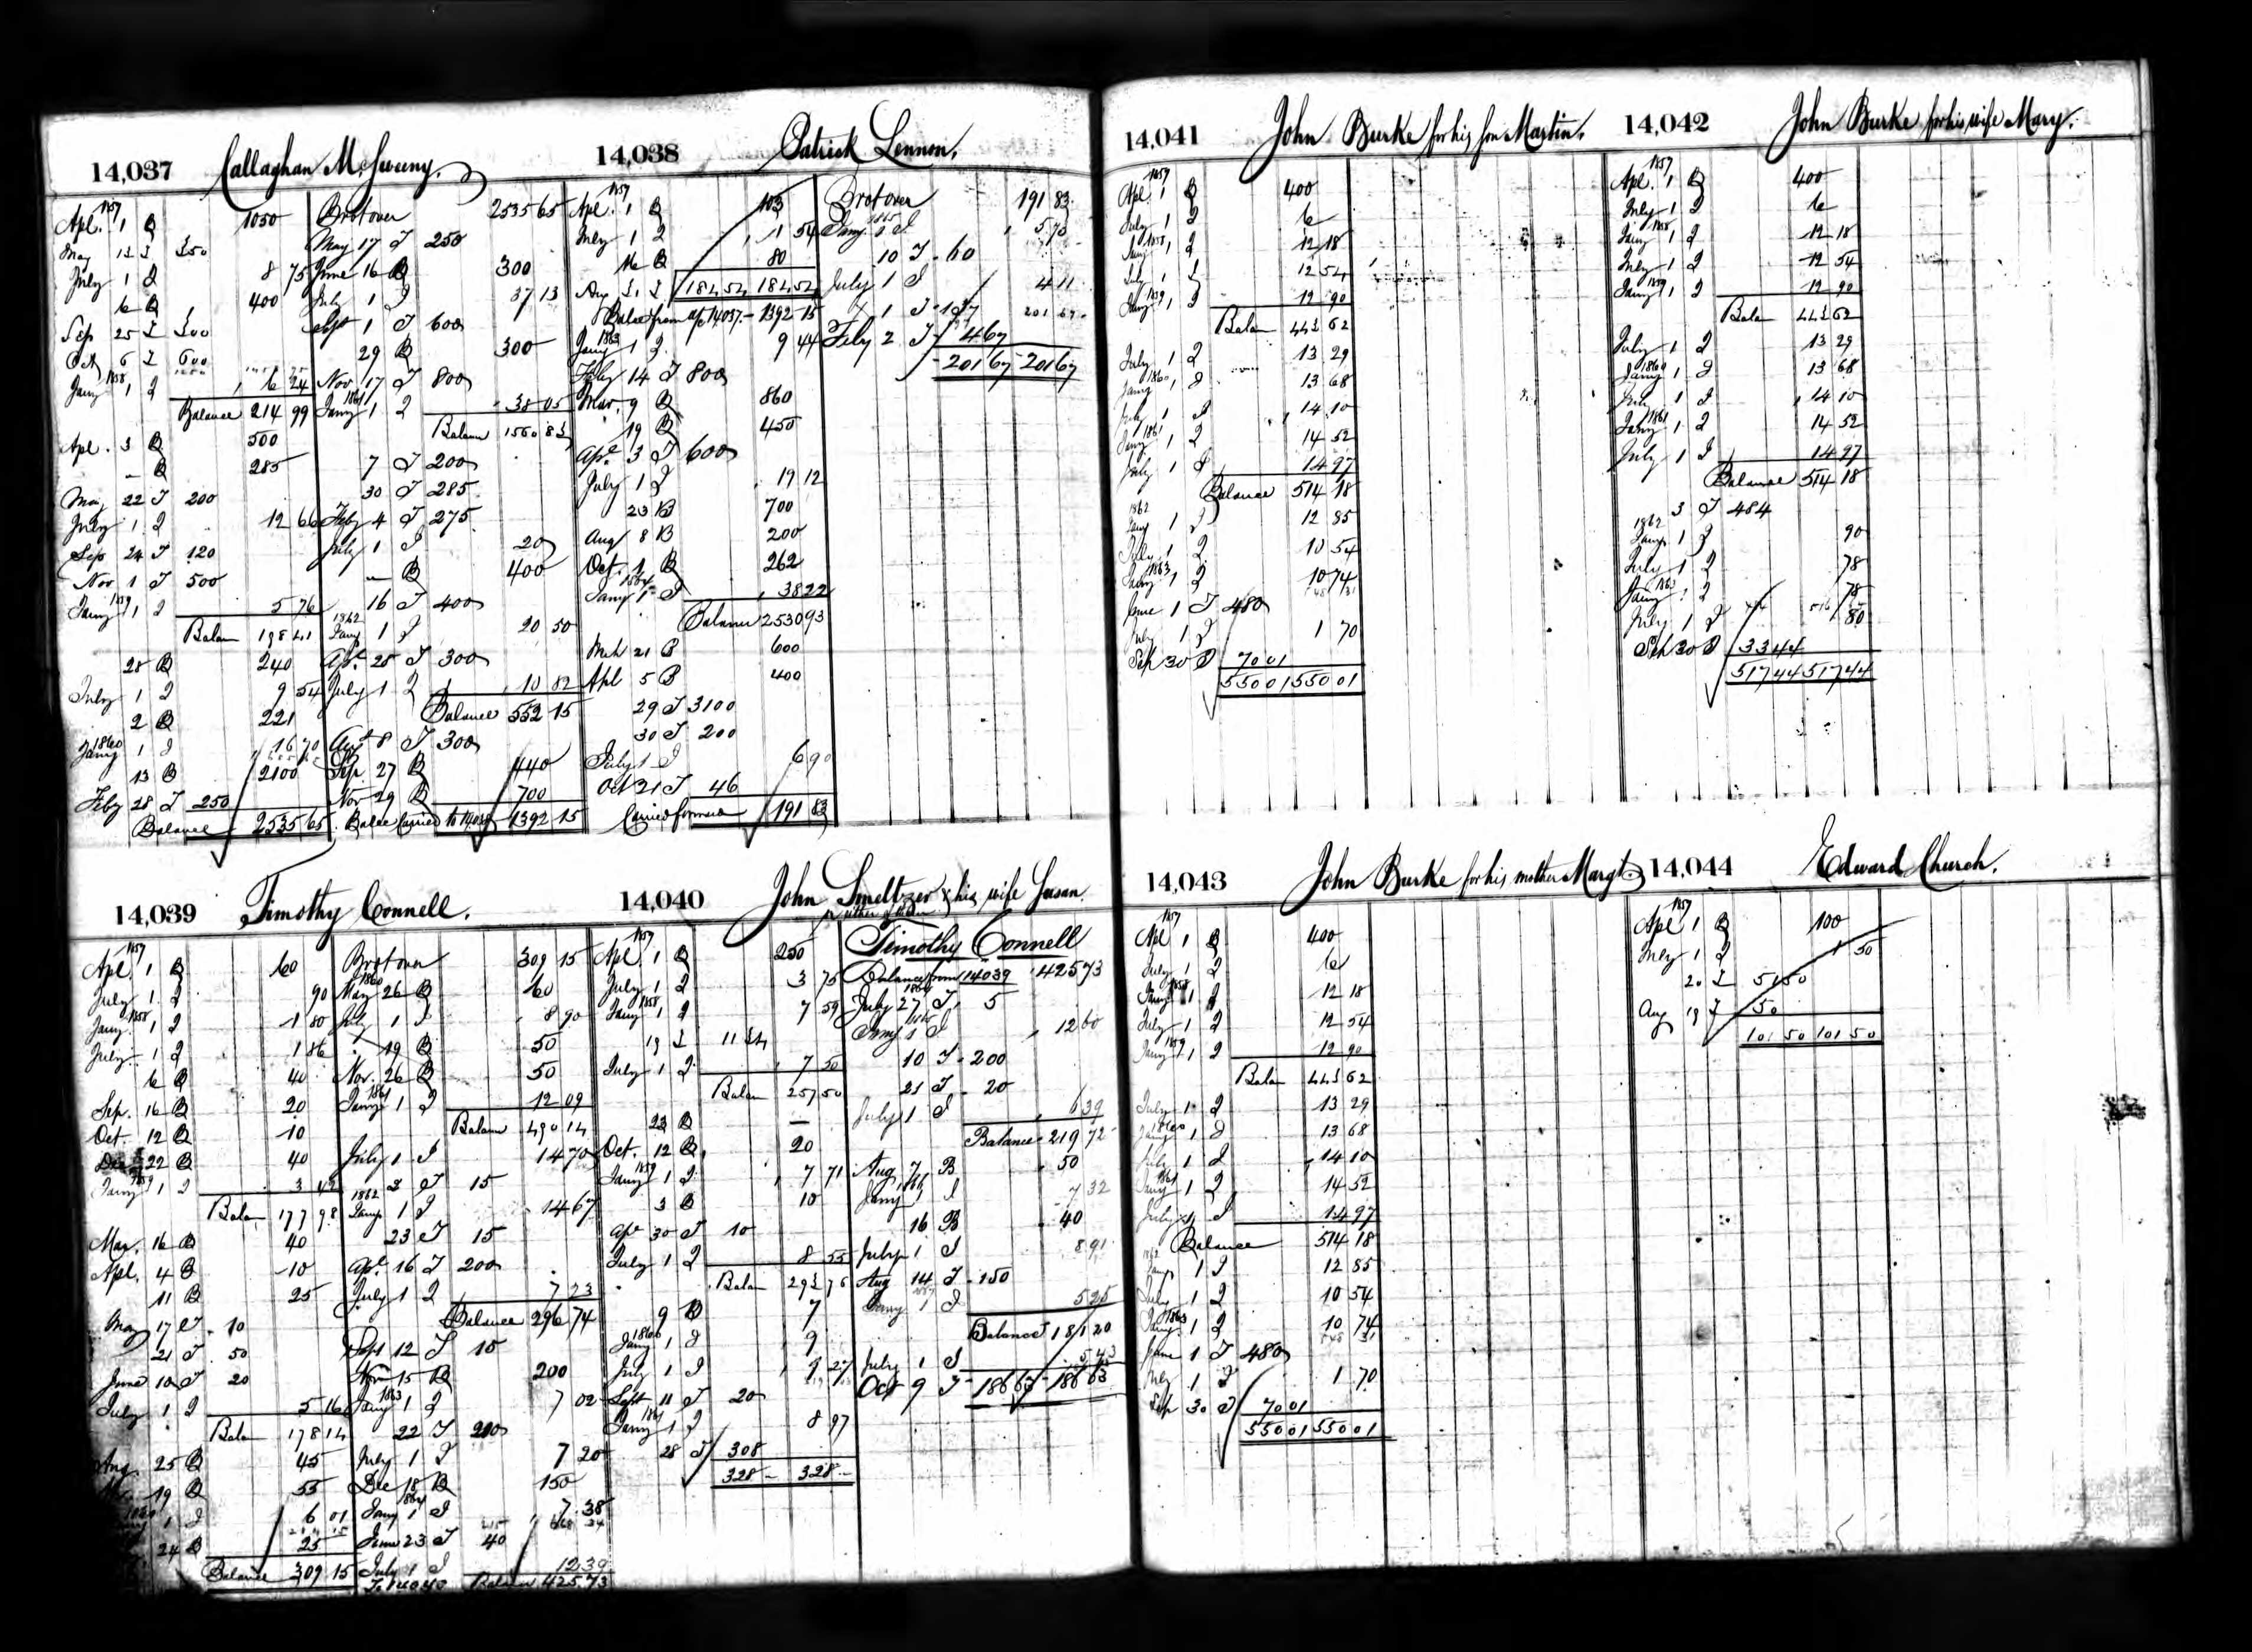 14,037 Callaghan McSweeny.
1857
Apl. 1 B 1050
May 13 I 350
July 1 I 8 75
6 B 400
Sep 25 I 300
Oct 6 I 600
1858
Jany 1 I 6 24
Balance 214 99
Apl. 3 B 500
— B 285
May 22 T 200
July 1 I 12 66
Sep 24 T 120
Nov 1 T 500
1859
Jany 1 I 5 76
Balan 198 41
28 B 240
July 1 I 9 54
2 B 221
1860
Jany 1 I 16 70
13 B 2100
Feby 28 T 250
Balance 2535 65
Brot over 2535 65
May 17 T 250
June 16 B 300
July 1 I 37 13
Sept 1 T 600
29 B 300
Nov. 17 T 800
1861
Jany 1 I 38 05
Balance 1560 83
7 T 200
30 T 285
Feby 4 T 275
July 1 I 20
— B 400
16 T 400
1862
Jany 1 I 20 50
Apl. 25 T 300
July 1 I 10 82
Balance 552 15
Aug 8 T 300
Sep. 27 B 440
Nov 29 B 700
Balce Carried to 14,038 1392 15
14,038 Patrick Lennon.
1857
Apl. 1 B 103
July 1 I 1 54
16 B 80
Aug 3 I 184 54 184 54
Balce from a/c 14,037. — 1392 15
1863
Jany 1 I 9 44
Feby 14 T 800
Mar. 9 B 860
19 B 450
Apl. 3 T 600
July 1 I 19 12
23 B 700
Aug 8 B 200
Oct. 1 B 262
1864
Jany 1 I 38 22
Balance 2530 93
Mch 21 B 600
Apl 5 B 400
29 T 3100
30 T 200
July 1 I 6 90
Oct 21 T 46
Carried forward 191 83
Brot over 191 83
1865
Jany 1 I 5 73
10 T 60
July 1 I 4 11
1 T 137
Feby 2 T 4 67
201 67 201 67
14,039 Timothy Connell.
1857
Apl. 1 B 60
July 1 I 90
1858
Jany 1 I 1 80
July 1 I 1 86
6 B 40
Sep. 16 B 20
Oct. 12 B 10
Dec 22 B 40
1859
Jany 1 I 3 42
Balan 177 98
Mar. 16 B 40
Apl. 4 B 10
11 B 25
May 17 T 10
21 T 50
June 10 T 20
July 1 I 5 16
Balan 178 14
Aug. 25 B 45
19 B 55
1 I 6 01
24 B 25
Balance 309 15
Brot over 309 15
1860
May 26 B 60
July 1 I 8 90
19 B 50
Nov. 26 B 50
1861
Jany 1 I 12 09
Balance 490 14
July 1 I 14 70
3 T 15
1862
Jany 1 I 14 67
23 T 15
Apl. 16 T 200
July 1 I 7 23
Balance 296 74
Sept 12 T 15
Nov 15 B 200
1863
Jany 1 I 7 02
22 T 200
July 1 I 7 20
Dec 18 B 150
1864
Jany 1 I 7 38
June 23 T 40
July 1 I 12 39
To 14040 Balance 425 73
14,040 John Smeltzer & his wife Susan.
1857
Apl. 1 B 250
July 1 I 3 75
1858
Jany 1 I 7 59
19 I 11 34
July 1 I 7 50
Balan 257 50
23 B —
Oct. 12 B 20
1859
Jany 1 I 7 71
3 B 10
Apl 30 T 10
July 1 I 8 55
Balan 293 76
9 B 7
1860
Jany 1 I 9
July 1 I 9 27
Sept 11 T 20
1861
Jany 1 I 8 97
28 T 308
328 — 328 —
Timothy Connell
Balance from 14039 425 73
1864
July 27 T 5
1865
Jany 1 I 12 60
10 T 200
21 T 20
July 1 I 6 39
Balance 219 72
Aug 7 B 50
1866
Jany 1 I 7 32
16 B 40
July 1 I 8 91
Aug 14 T 150
1867
Jany 1 I 5 25
Balance 181 20
July 1 I 5 43
Oct 9 T 186 63 186 63
14,041 John Burke for his son Martin.
1857
Apl. 1 B 400
July 1 I 6
1858
Jany 1 I 12 18
July 1 I 12 54
1859
Jany 1 I 12 90
Balan 443 62
July 1 I 13 29
1860
Jany 1 I 13 68
July 1 I 14 10
1861
Jany 1 I 14 52
July 1 I 14 97
Balance 514 18
1862
Jany 1 I 12 85
July 1 I 10 54
1863
Jany 1 I 10 74
June 1 T 480
July 1 I 1 70
Sep 30 T 70 01
550 01 550 01
14,042 John Burke for his wife Mary.
1857
Apl. 1 B 400
July 1 I 6
1858
Jany 1 I 12 18
July 1 I 12 54
1859
Jany 1 I 12 90
Balan 443 62
July 1 I 13 29
1860
Jany 1 I 13 68
July 1 I 14 10
1861
Jany 1 I 14 52
July 1 I 14 97
Balance 514 18
3 T 484
1862
Jany 1 I 90
July 1 I 78
1863
Jany 1 I 78
July 1 I 80
Sep 30 T 33 44
517 44 517 44
14,043 John Burke for his mother Margt
1857
Apl 1 B 400
July 1 I 6
1858
Jany 1 I 12 18
July 1 I 12 54
1859
Jany 1 I 12 90
Balan 443 62
July 1 I 13 29
1860
Jany 1 I 13 68
July 1 I 14 10
1861
Jany 1 I 14 52
July 1 I 14 97
Balance 514 18
1862
Jany 1 I 12 85
July 1 I 10 54
1863
Jany 1 I 10 74
June 1 T 480
July 1 I 1 70
Sep 30 T 70 01
550 01 550 01
14,044 Edward Church.
1857
Apl 1 B 100
July 1 I 1 50
20 I 51 50
Aug 19 T 50
101 50 101 50